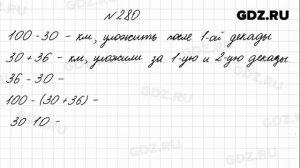 GDZ.RU
№280
100-30 - км, уложить после 1-ой декады
30+36 - км, уложили за 1-ую и 2-ую декады
36-30 -
100-(30+36) -
30 10 -
GDZ.RU